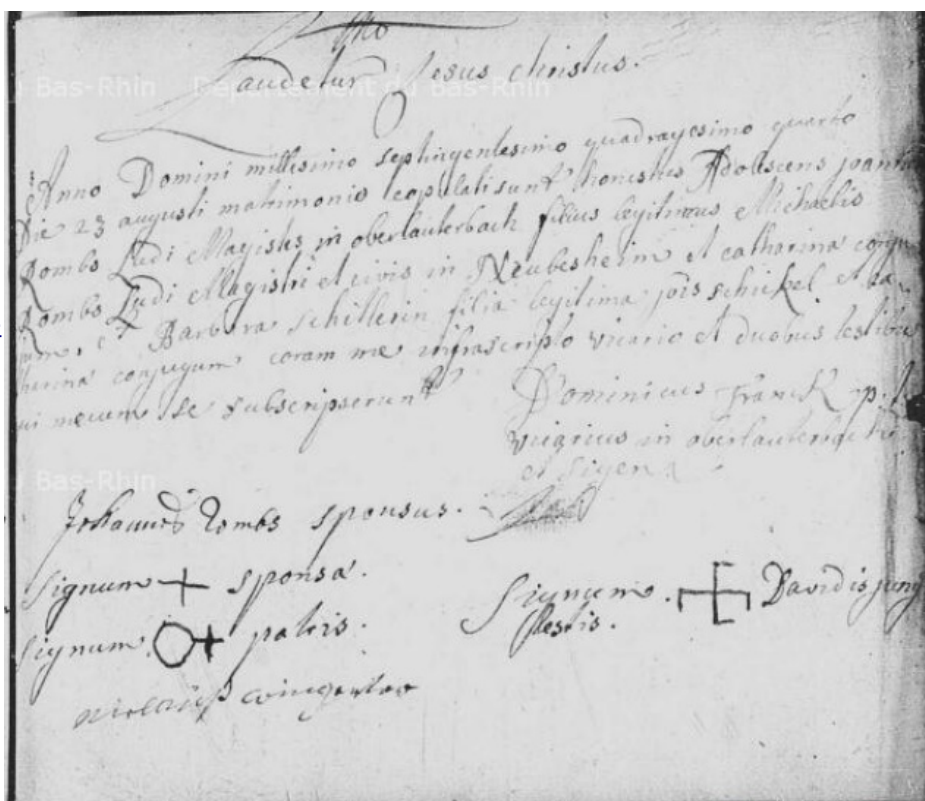 Laudetur Jesus christus.
Anno Domini millesimo septingentesimo quadragesimo quarto
Die 23 augusti matrimonio copulati sunt honestus Adolescens joannes
Rombs Ludi Magister in oberlauterbach filius legitimus Michaelis
Rombs Ludi Magistri et civis in et catharina conju
gum, et Barbara schillerin filia legitima jois schickel et ca
therina conjugum coram me infrascripto vicario et duobus testibus
qui mecum se subscripserunt
Dominicus Franck p.
vicarius in oberlauterbach
et sigen
Johannes Rombs sponsus.
Signum + sponsa.
Signum patris.
Signum. Davidis jung
testis.